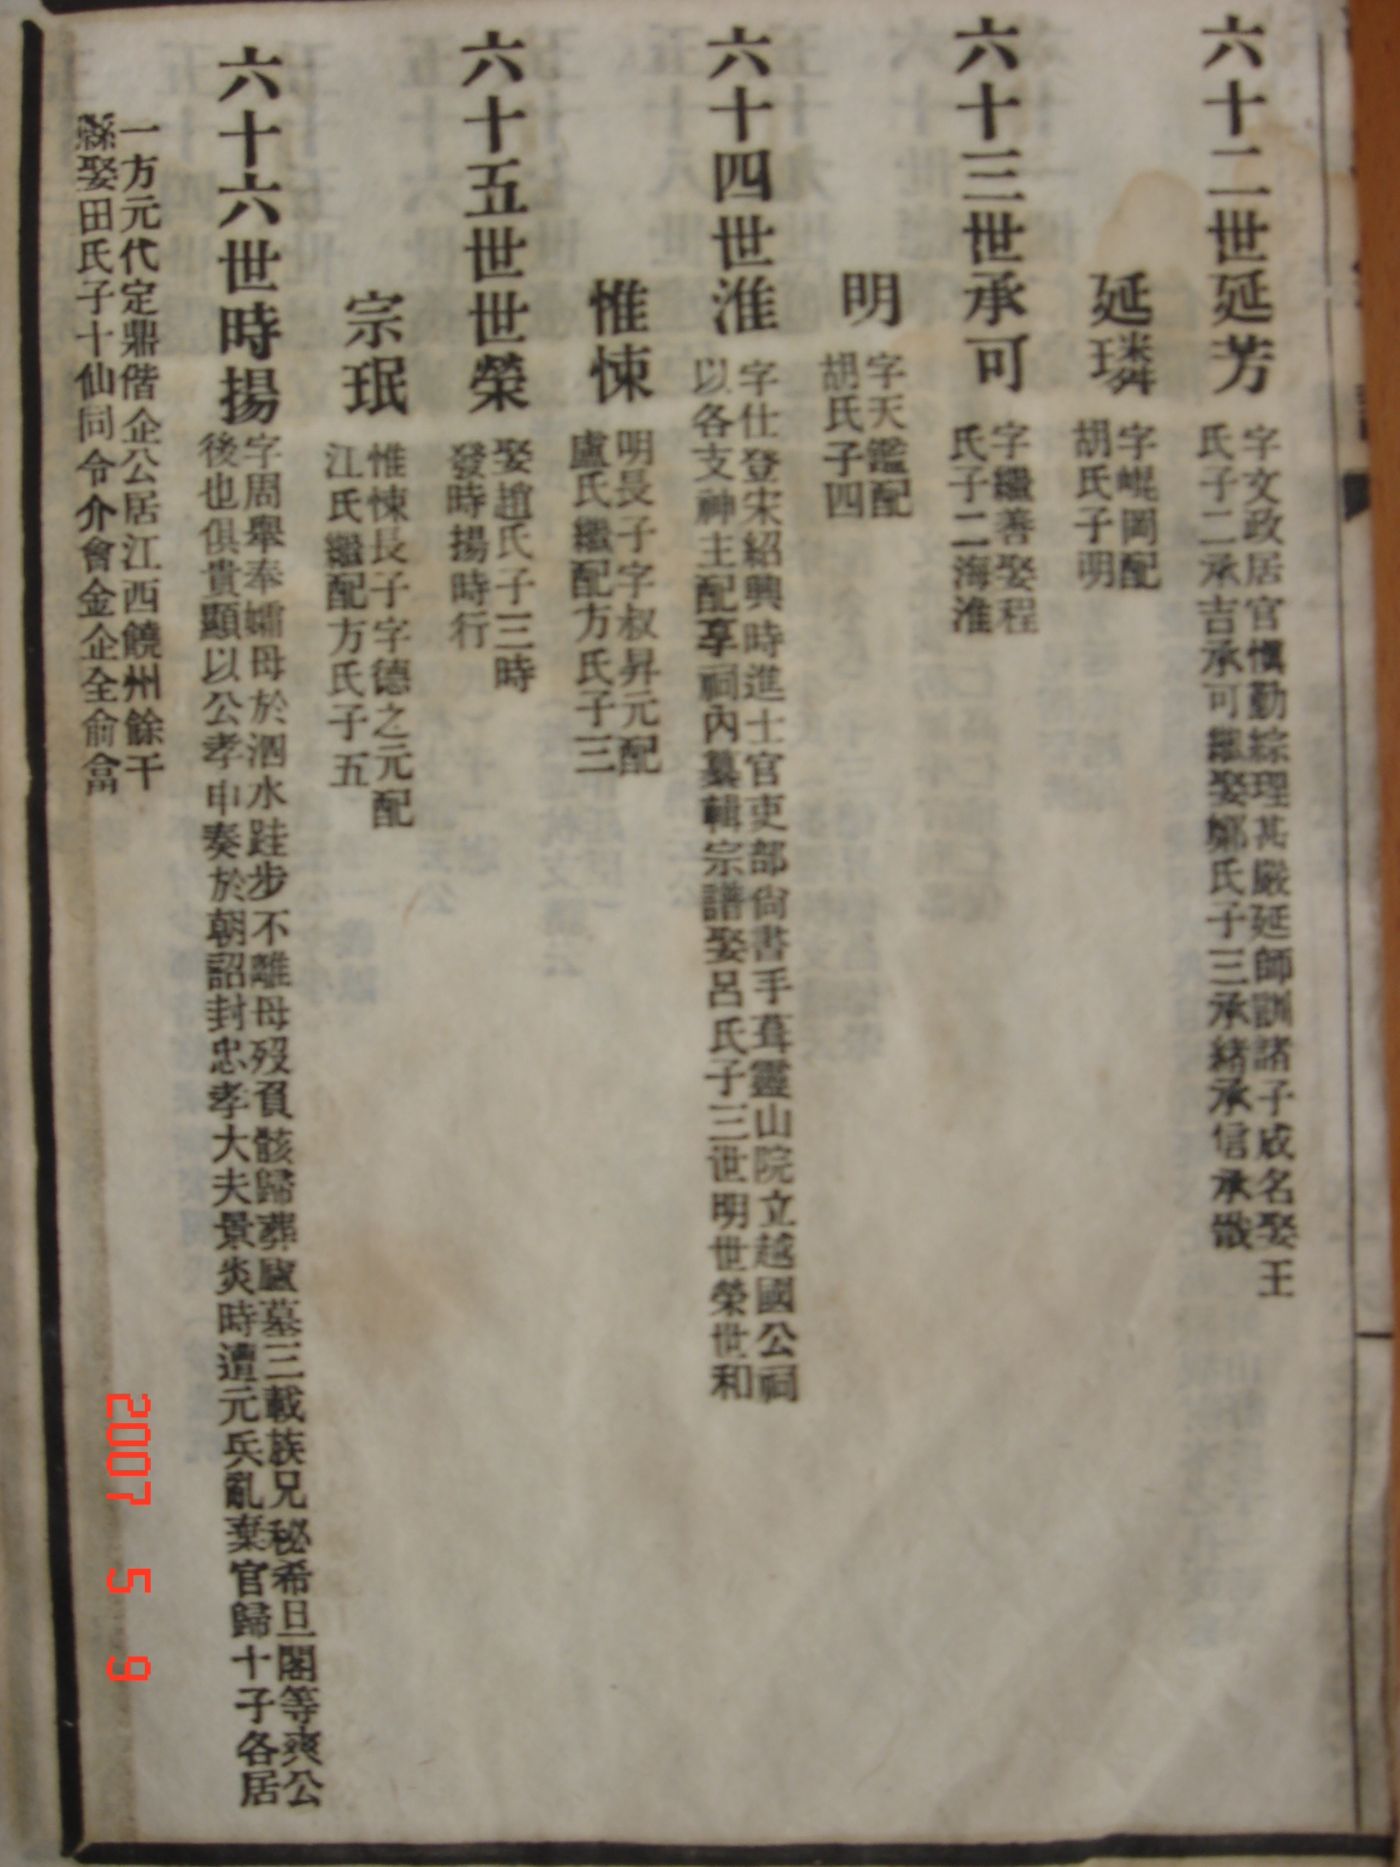 六十二世延芳
字文政居官慎勤綜理甚嚴延師訓諸子成名娶王
氏子二承吉承可繼娶鄭氏子三承緒承信承戩
延璘
字崐岡配
胡氏子明
六十三世承可
字繼善娶程
氏子二海淮
明
字天鑑配
胡氏子四
六十四世淮
字仕登宋紹興時進士官吏部尙書手葺靈山院立越國公祠
以各支神主配享祠內纂輯宗譜娶呂氏子三世明世榮世和
惟悚
明長子字叔昇元配
盧氏繼配方氏子三
六十五世世榮
娶趙氏子三時
發時揚時行
宗珉
惟悚長子字德之元配
江氏繼配方氏子五
六十六世時揚
字周舉奉孀母於泗水跬步不離母歿負骸歸葬廬墓三載族兄秘希旦閣等爽公
後也俱貴顯以公孝申奏於朝詔封忠孝大夫景炎時遭元兵亂棄官歸十子各居
一方元代定鼎偕企公居江西饒州餘干
縣娶田氏子十仙同令介會金企全俞禽
2007 5 9